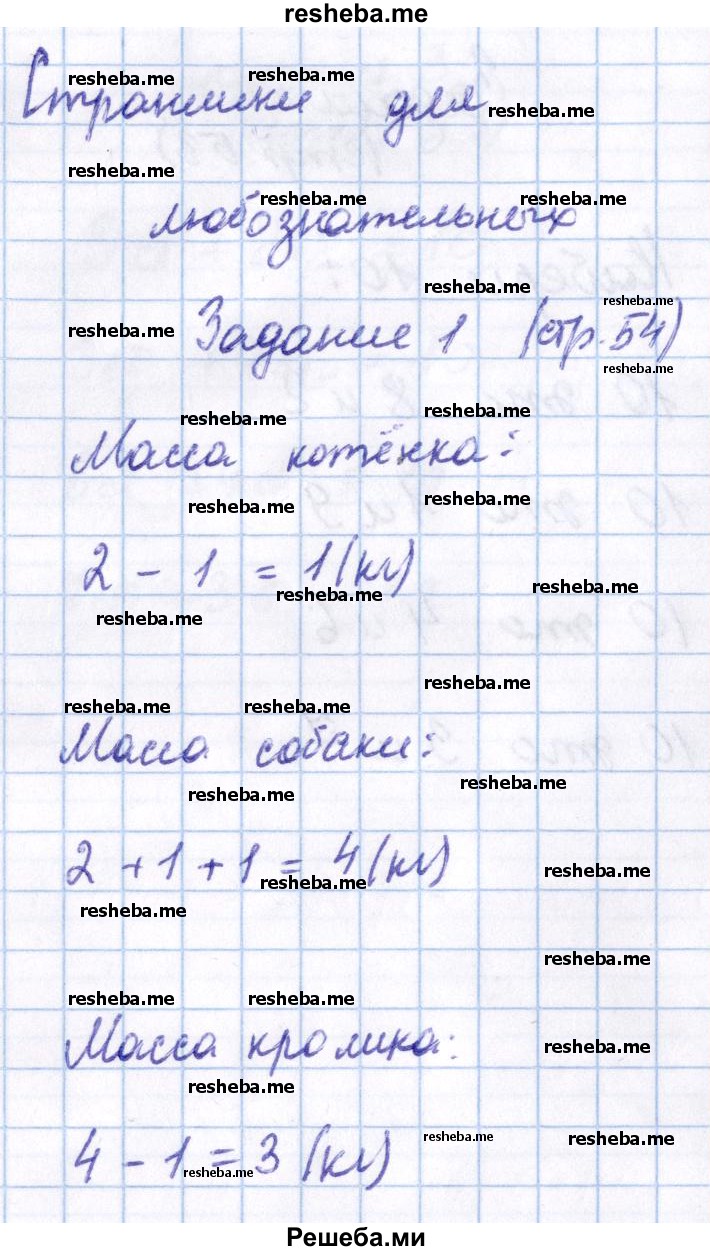 resheba.me
resheba.me resheba.me
Странички для
resheba.me
resheba.me
resheba.me resheba.me
любознательных
resheba.me
resheba.me
resheba.me
Задание 1 (стр. 54)
resheba.me
resheba.me
resheba.me
Масса котёнка:
resheba.me
resheba.me
2 - 1 = 1 (кг)
resheba.me
resheba.me
resheba.me
resheba.me
resheba.me resheba.me
Масса собаки:
resheba.me
resheba.me
2 + 1 + 1 = 4 (кг)
resheba.me
resheba.me
resheba.me
resheba.me
resheba.me resheba.me
Масса кролика:
resheba.me
resheba.me
resheba.me
resheba.me
4 - 1 = 3 (кг)
resheba.me
Решеба.ми